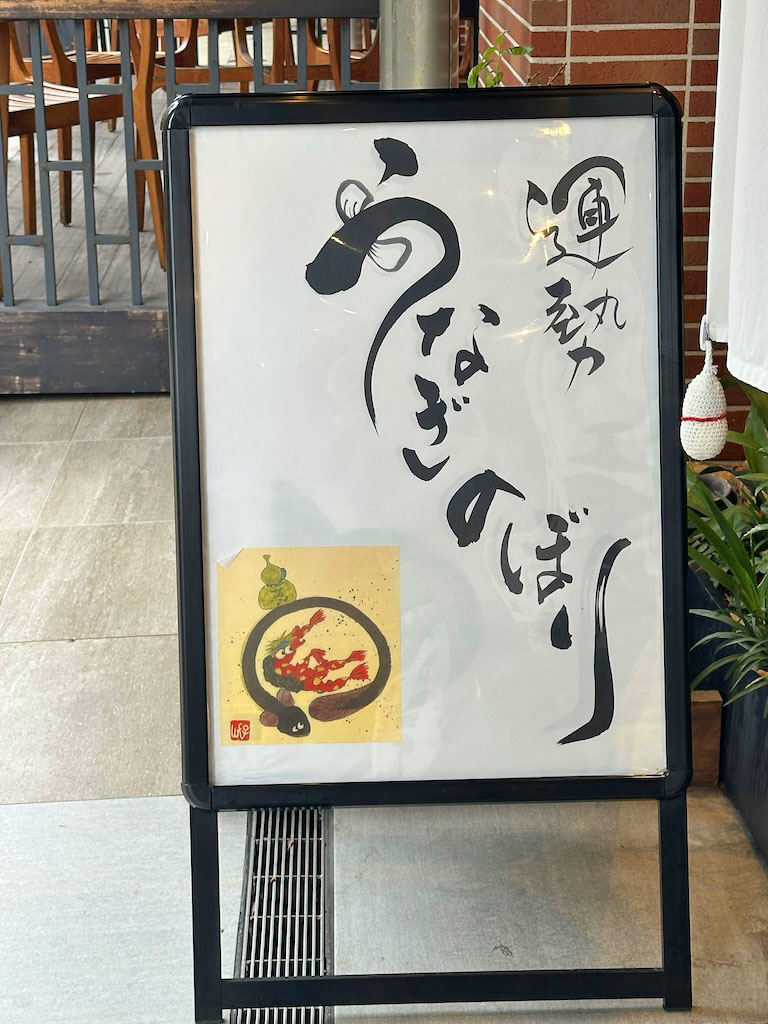 運勢
うなぎのぼり